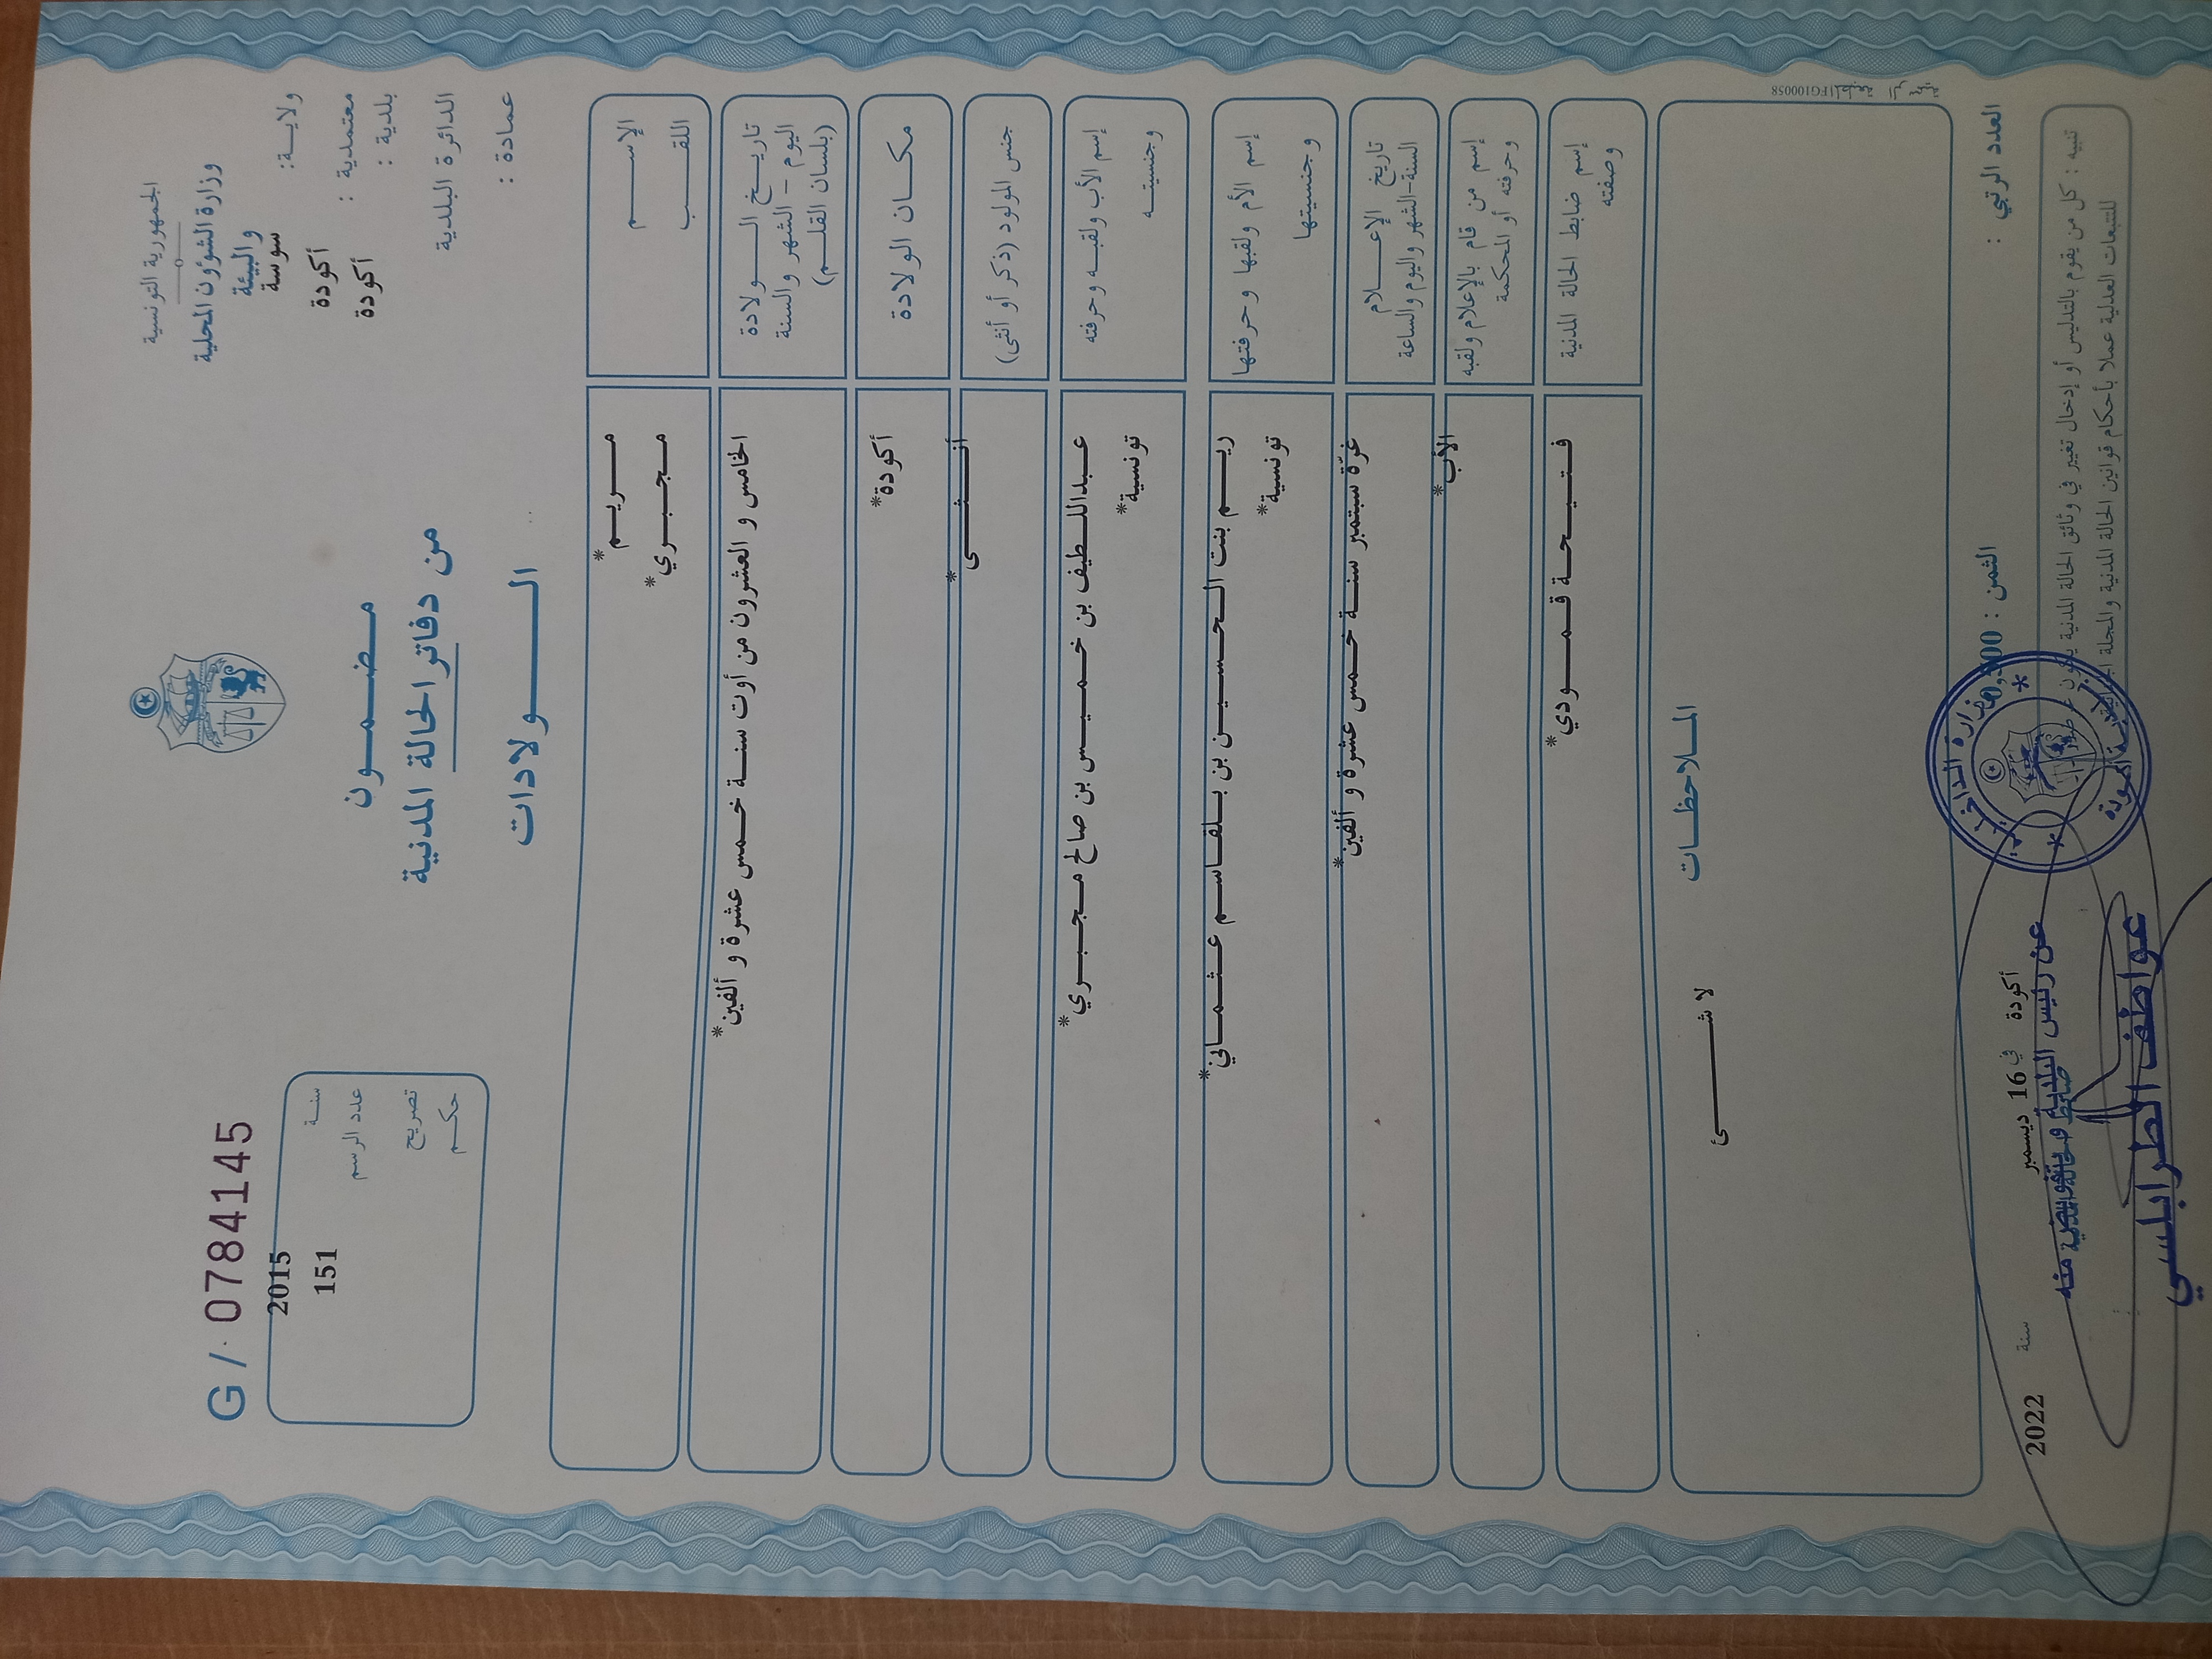 الجمهورية التونسية
وزارة الشؤون المحلية
والبيئة
ولاية: سوسة
معتمدية : أكودة
بلدية : أكودة
الدائرة البلدية
عمادة :
G / 0784145
سنة 2015
عدد الرسم 151
تصريح
حكم
مضمون
من دفاتر الحالة المدنية
الولادات
الإسم مريم*
اللقب مجبري*
تاريخ الولادة الخامس و العشرون من أوت سنة خمس عشرة و ألفين*
اليوم - الشهر والسنة
(بلسان القلم)
مكان الولادة أكودة*
جنس المولود (ذكر أو أنثى) أنثى*
إسم الأب ولقبه وحرفته عبداللطيف بن خميس بن صالح مجبري*
وجنسيته تونسية*
إسم الأم ولقبها وحرفتها ريم بنت الحسين بن بلقاسم عثماني*
وجنسيتها تونسية*
تاريخ الإعلام غرّة سبتمبر سنة خمس عشرة و ألفين*
السنة-الشهر واليوم والساعة
إسم من قام بالإعلام ولقبه الأب*
وحرفته أو المحكمة
إسم ضابط الحالة المدنية فتيحة قمودي*
وصفته
الملاحظات
لا شئ
FG100058
العدد الرتبي :
الثمن : 0,500
أكودة في 16 ديسمبر سنة 2022
تنبيه : كل من يقوم بالتدليس أو إدخال تغيير في وثائق الحالة المدنية يكون
للتتبعات العدلية عملا بأحكام قوانين الحالة المدنية والمجلة
وزارة الداخلية
بلدية أكودة
عن رئيس البلدية وبتفويض منه
ضابط الحالة المدنية
عواطف الطرابلسي